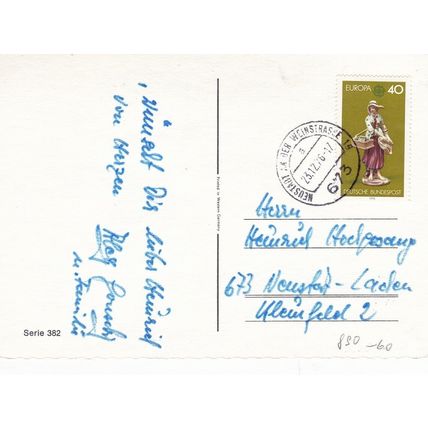 EUROPA 40
DEUTSCHE BUNDESPOST
NEUSTADT AN DER WEINSTRASSE
23.12.76-17
673
Wünscht Dir lieber Heinrich
von Herzen
u. Familie
Printed in Western Germany
Herrn
Heinrich
673 Neustadt-
Kleinfeld 2
830 -60
Serie 382